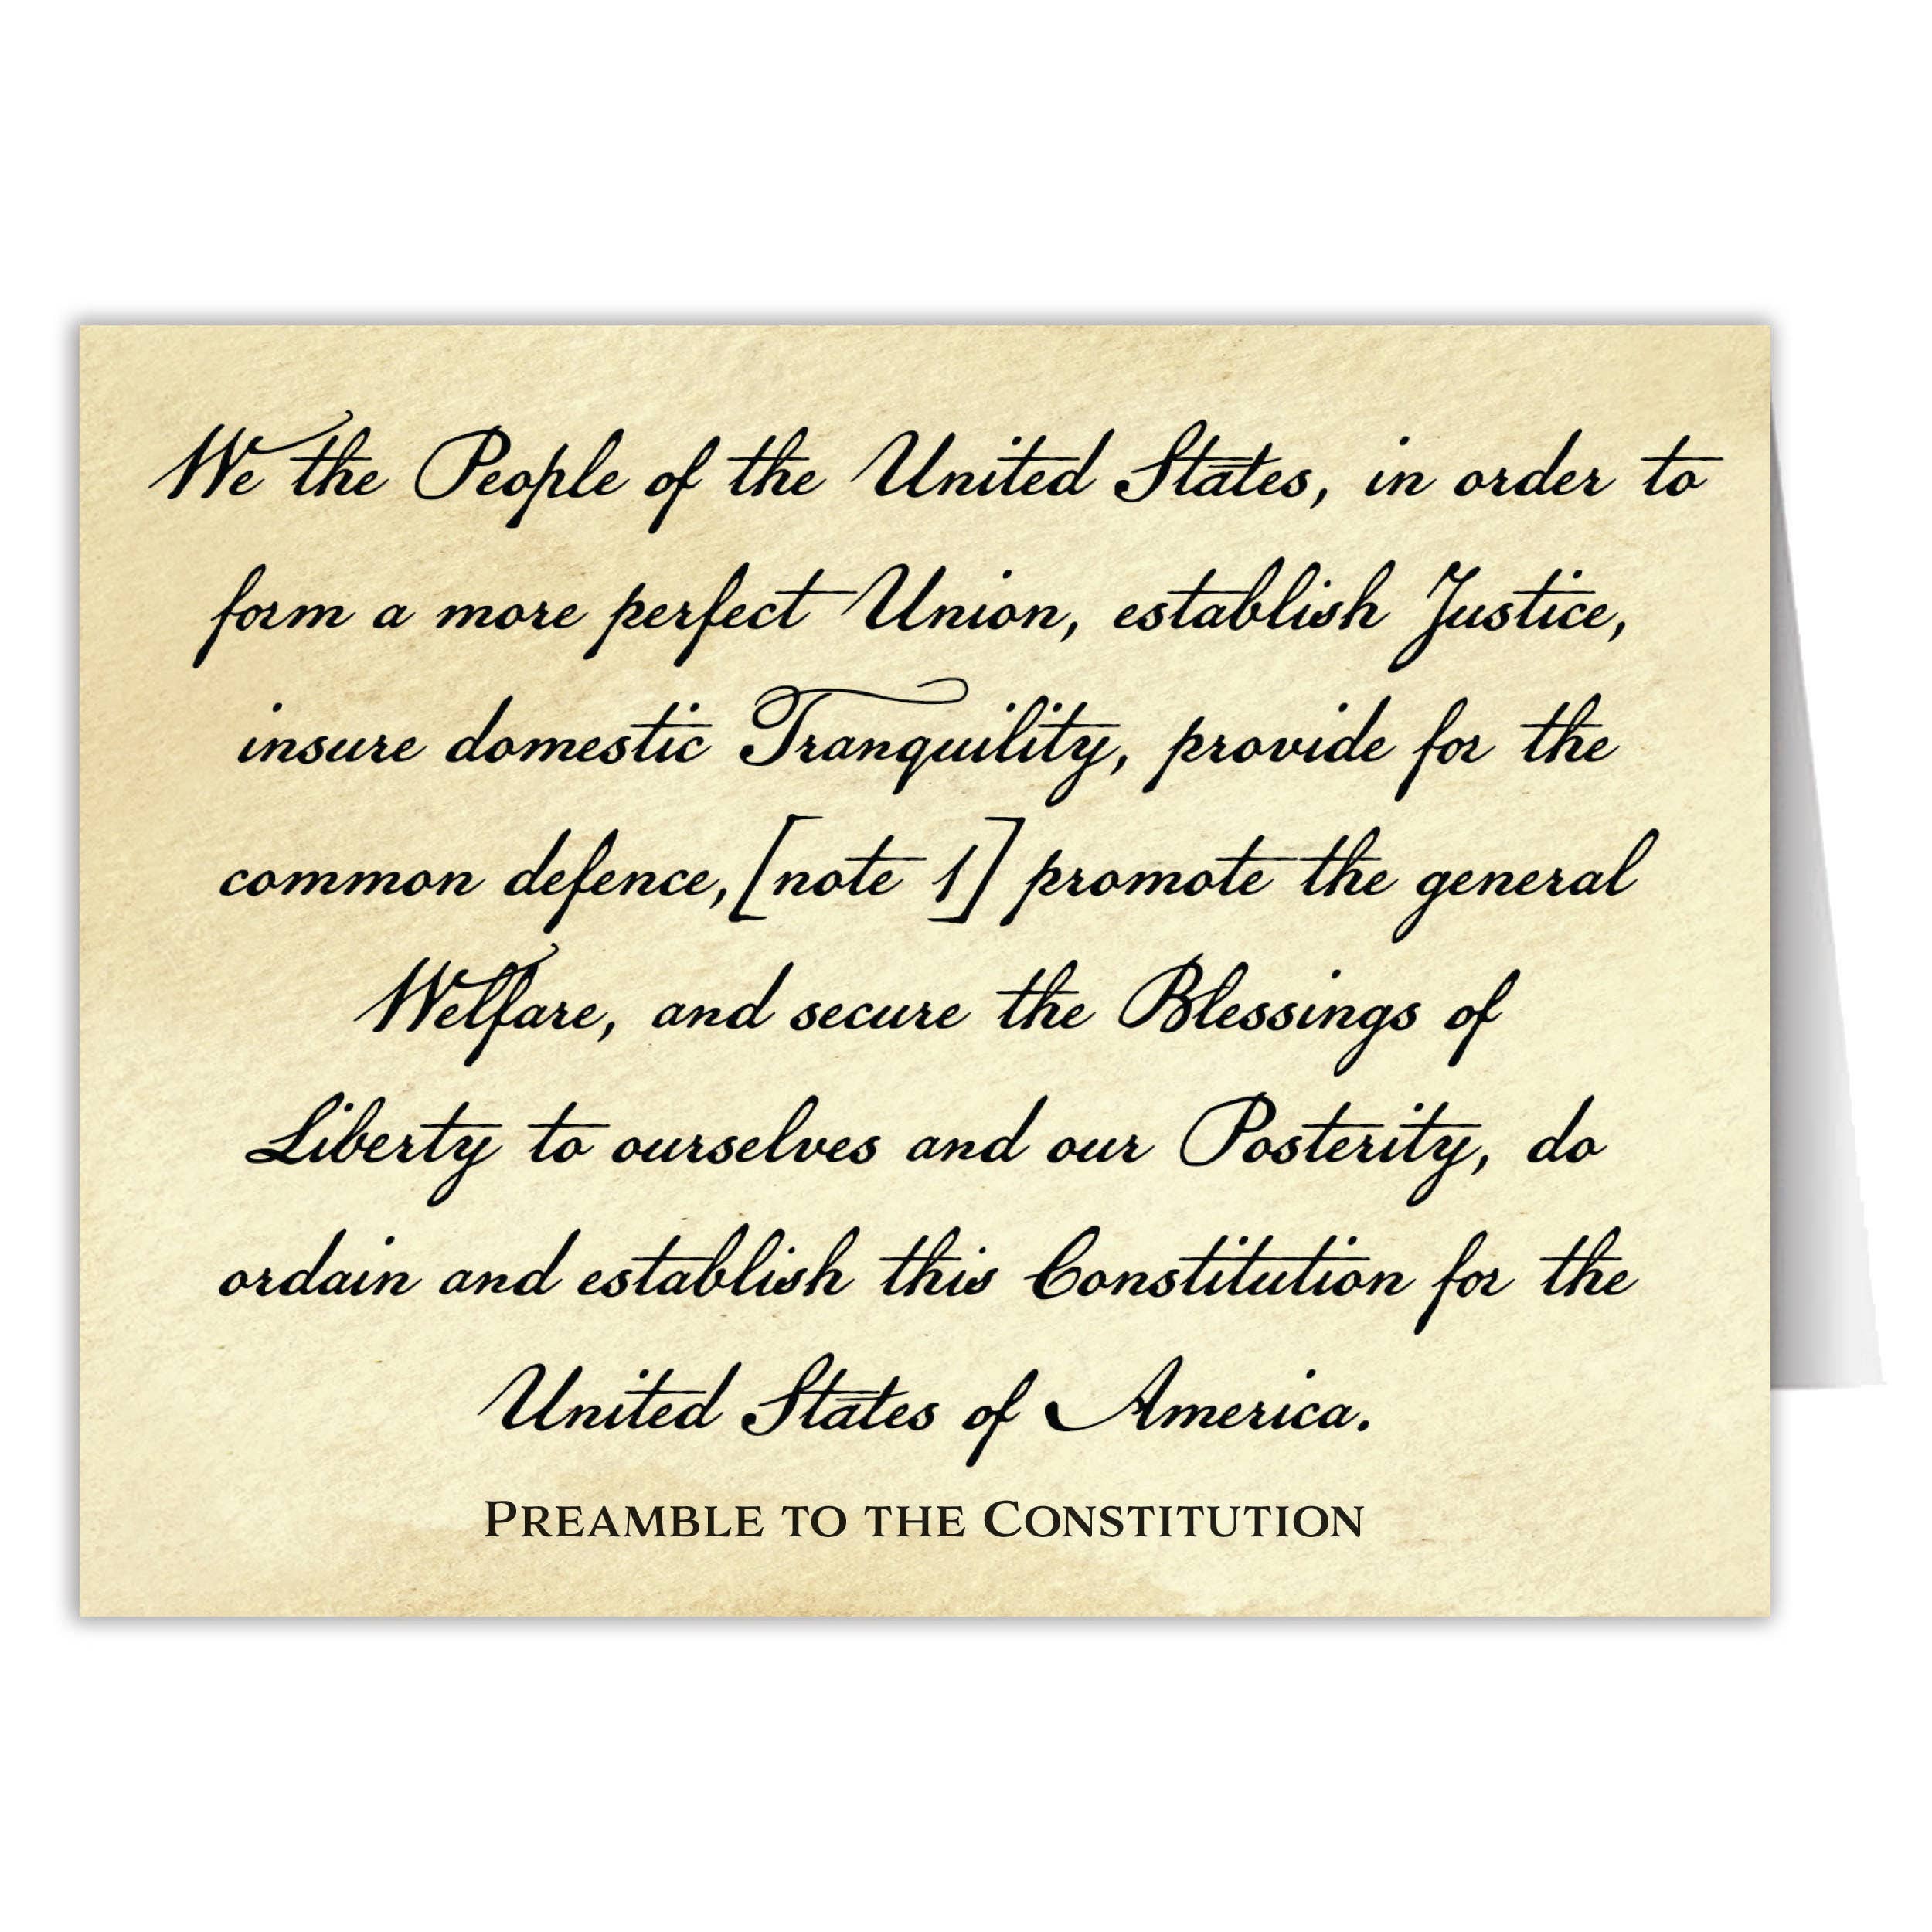 We the People of the United States, in order to
form a more perfect Union, establish Justice,
insure domestic Tranquility, provide for the
common defence,[note 1] promote the general
Welfare, and secure the Blessings of
Liberty to ourselves and our Posterity, do
ordain and establish this Constitution for the
United States of America.
PREAMBLE TO THE CONSTITUTION